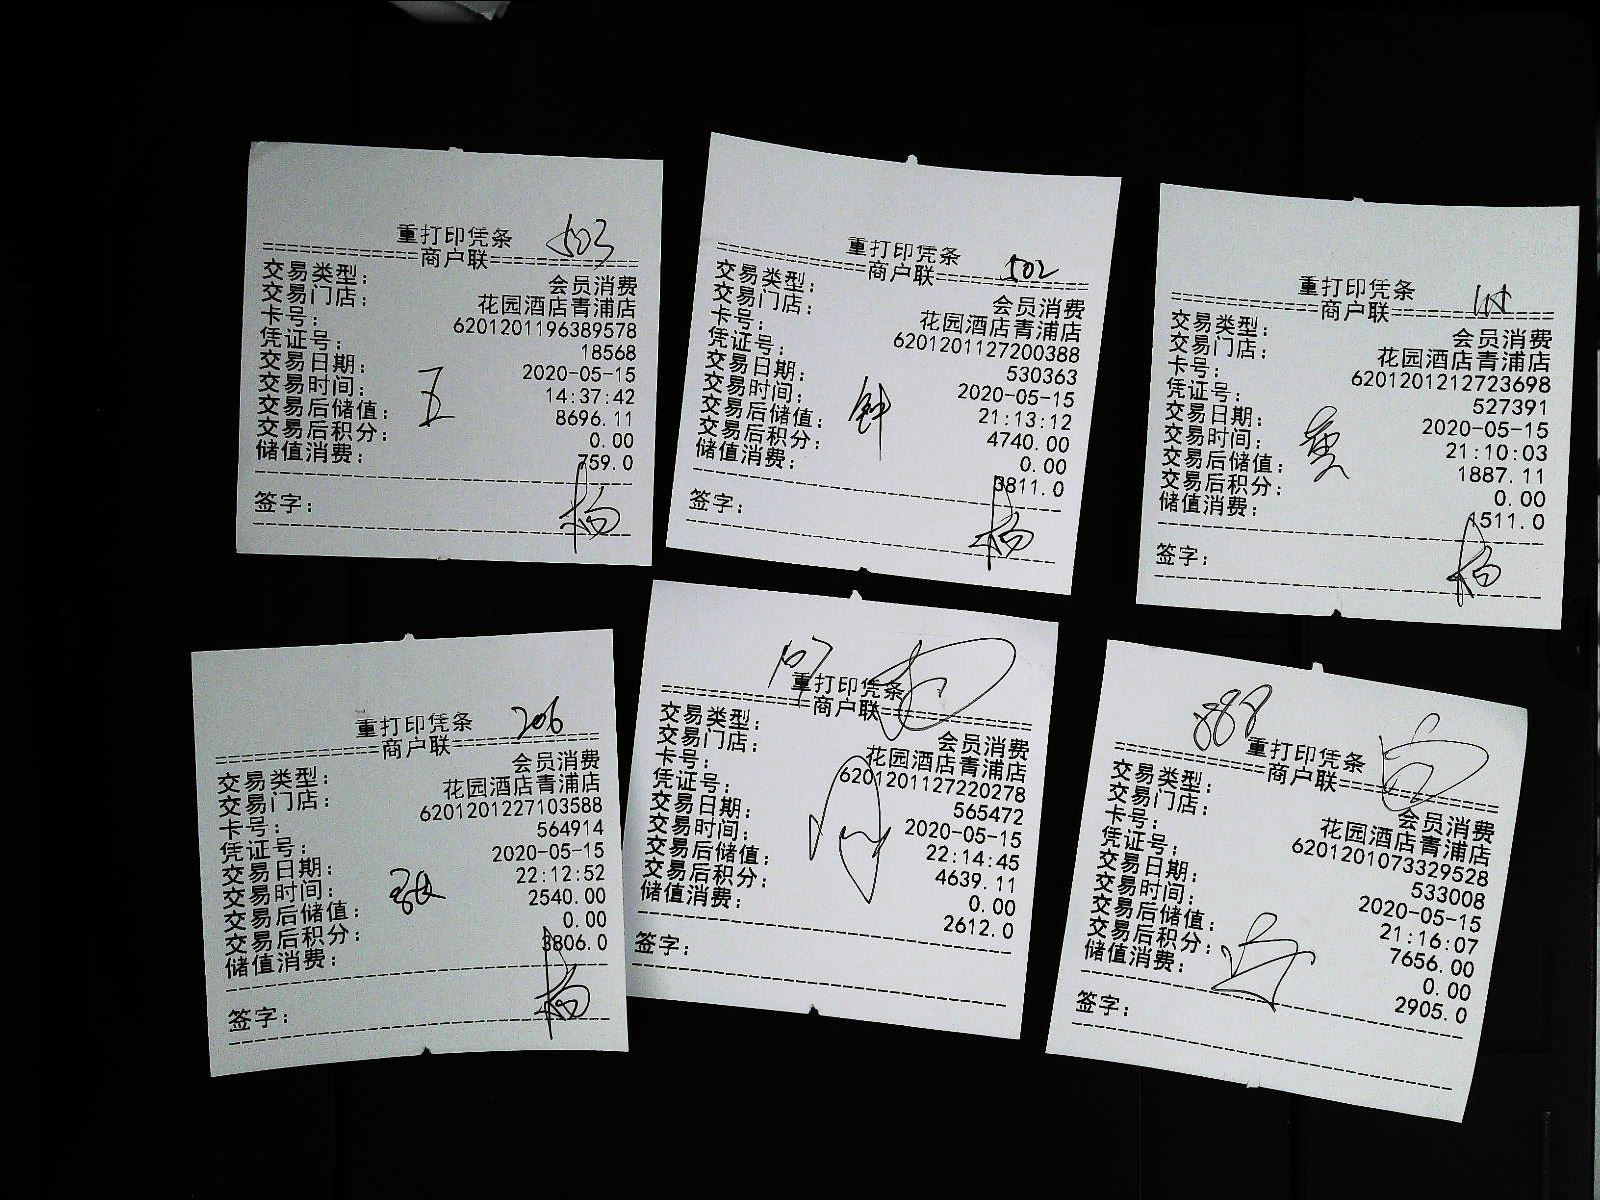 重打印凭条 503
商户联
交易类型: 会员消费
交易门店: 花园酒店青浦店
卡号: 6201201196389578
凭证号: 18568
交易日期: 2020-05-15
交易时间: 14:37:42
交易后储值: 8696.11
交易后积分: 0.00
储值消费: 759.0
签字: 杨
重打印凭条 502
商户联
交易类型: 会员消费
交易门店: 花园酒店青浦店
卡号: 6201201127200388
凭证号: 530363
交易日期: 2020-05-15
交易时间: 21:13:12
交易后储值: 4740.00
钟
交易后积分: 0.00
储值消费: 3811.0
签字: 杨
重打印凭条
商户联
交易类型: 会员消费
交易门店: 花园酒店青浦店
卡号: 6201201212723698
凭证号: 527391
交易日期: 2020-05-15
交易时间: 21:10:03
交易后储值: 1887.11
交易后积分: 0.00
储值消费: 1511.0
签字: 杨
重打印凭条 206
商户联
交易类型: 会员消费
交易门店: 花园酒店青浦店
卡号: 6201201227103588
凭证号: 564914
交易日期: 2020-05-15
交易时间: 22:12:52
交易后储值: 2540.00
交易后积分: 0.00
储值消费: 3806.0
签字: 杨
107
重打印凭条
商户联
交易类型: 会员消费
交易门店: 花园酒店青浦店
卡号: 6201201127220278
凭证号: 565472
交易日期: 2020-05-15
交易时间: 22:14:45
交易后储值: 4639.11
交易后积分: 0.00
储值消费: 2612.0
签字:
888
重打印凭条
商户联
交易类型: 会员消费
交易门店: 花园酒店青浦店
卡号: 6201201073329528
凭证号: 533008
交易日期: 2020-05-15
交易时间: 21:16:07
交易后储值: 7656.00
交易后积分: 0.00
储值消费: 2905.0
签字: